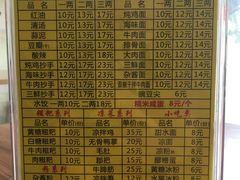 一两 二两 三两 一两 二两 三两
红油 10元 13元 17元 炖鸡面 10元 12元 14元
清汤 10元 13元 17元 鸡杂面 10元 12元 14元
蒜泥 10元 13元 17元 牛肉面 10元 12元 14元
豆瓣 10元 13元 17元 10元 12元 14元
酸辣 10元 13元 17元 大肉面 10元 12元 14元
炖鸡抄手 13元 17元 23元 海味面 10元 12元 14元
海味抄手 13元 17元 23元 三鲜面 10元 12元 14元
三鲜抄手 13元 17元 23元 杂酱面 10元 12元 14元
牛肉抄手 13元 17元 23元 10元 12元 14元
杂酱抄手 13元 17元 23元 豌豆尖 6元
水饺 一两10元 二两18元 糯米咸蛋 8元/个
系列 凉菜系列 小吃
品名 单价 品名 单价 品名 单价
黄糖糍粑 10元 凉拌鸡 35元 甜水面 8元
糍粑 10元 无骨鸭掌 20元 凉面 8元
牛肉糍粑 10元 毛肚 25元 凉粉 8元
肉糍粑 10元 郡把 25元 醪糟蛋 8元
牛蹄筋 25元 黄糖冰粉 6元